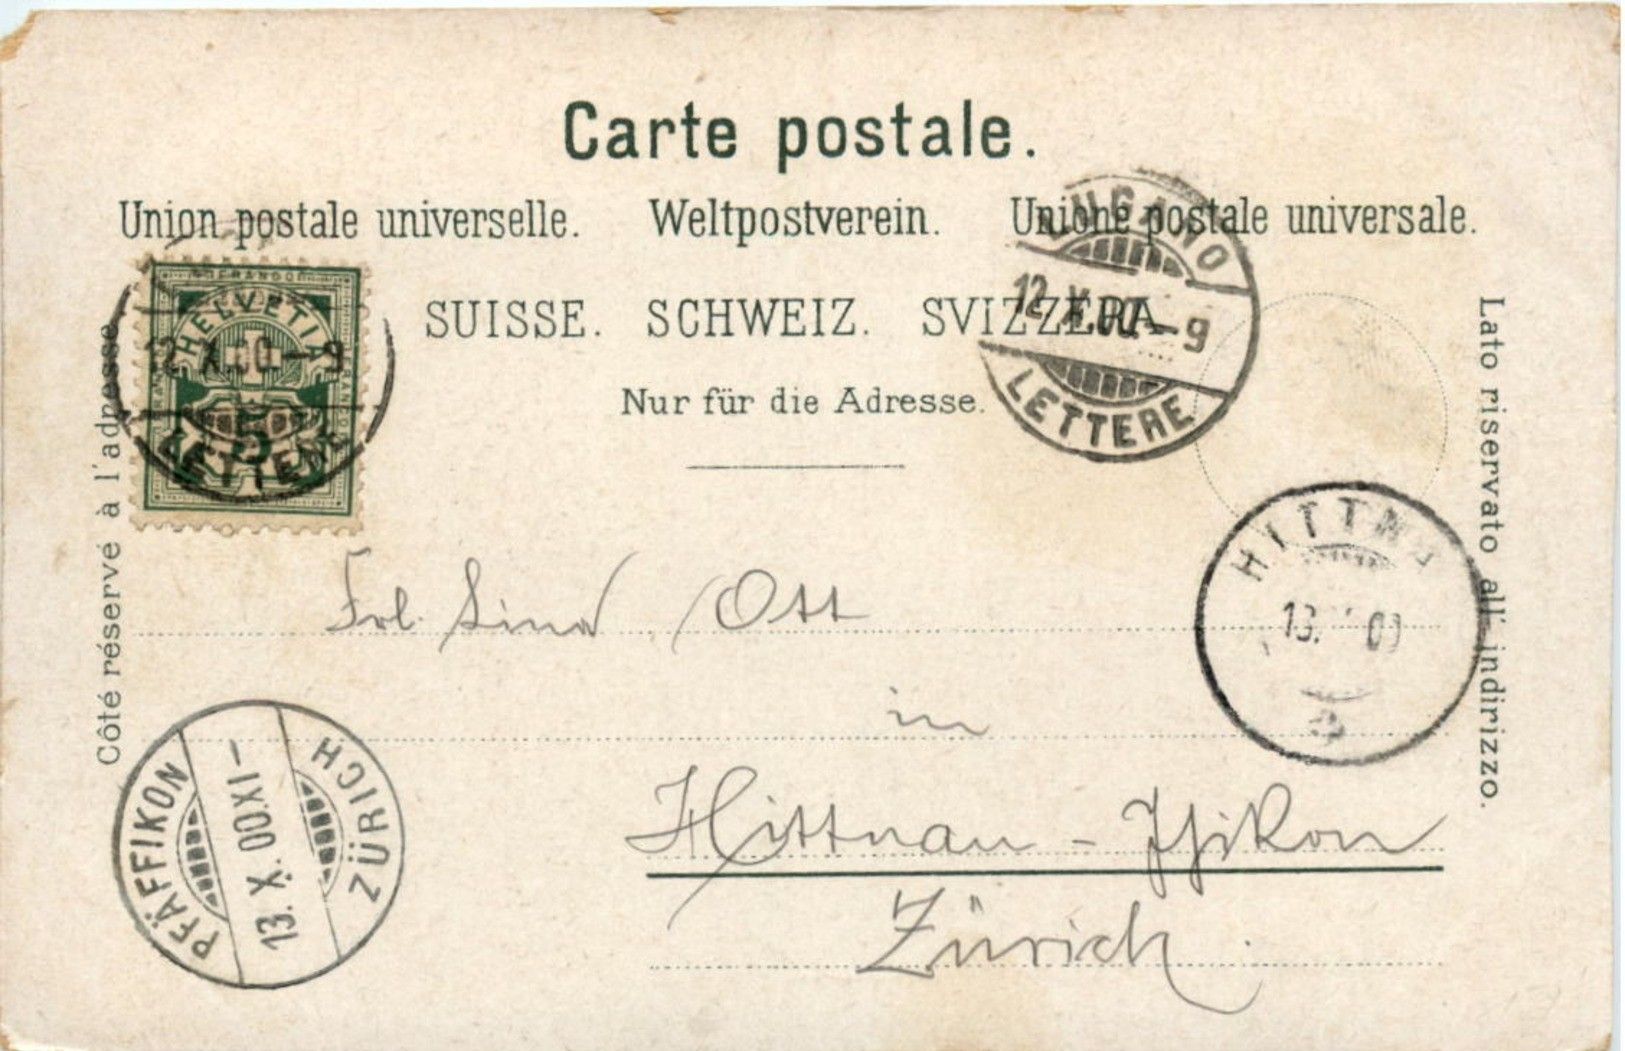 Carte postale.
Union postale universelle. Weltpostverein. Unione postale universale.
SUISSE. SCHWEIZ. SVIZZERA
Nur für die Adresse.
Côté réservé à l'adresse.
Lato riservato all' indirizzo.
FRANCO
HELVETIA
FRANCO
FRANCO
5
12 X.00.-9
LETTERE
LUGANO
12.X.00.-9
LETTERE
HITTNAU
13. 00
Frl. Lina Ott
in
Hittnau - Isikon
Zürich.
PFÄFFIKON
13. X. 00.XI-
ZÜRICH